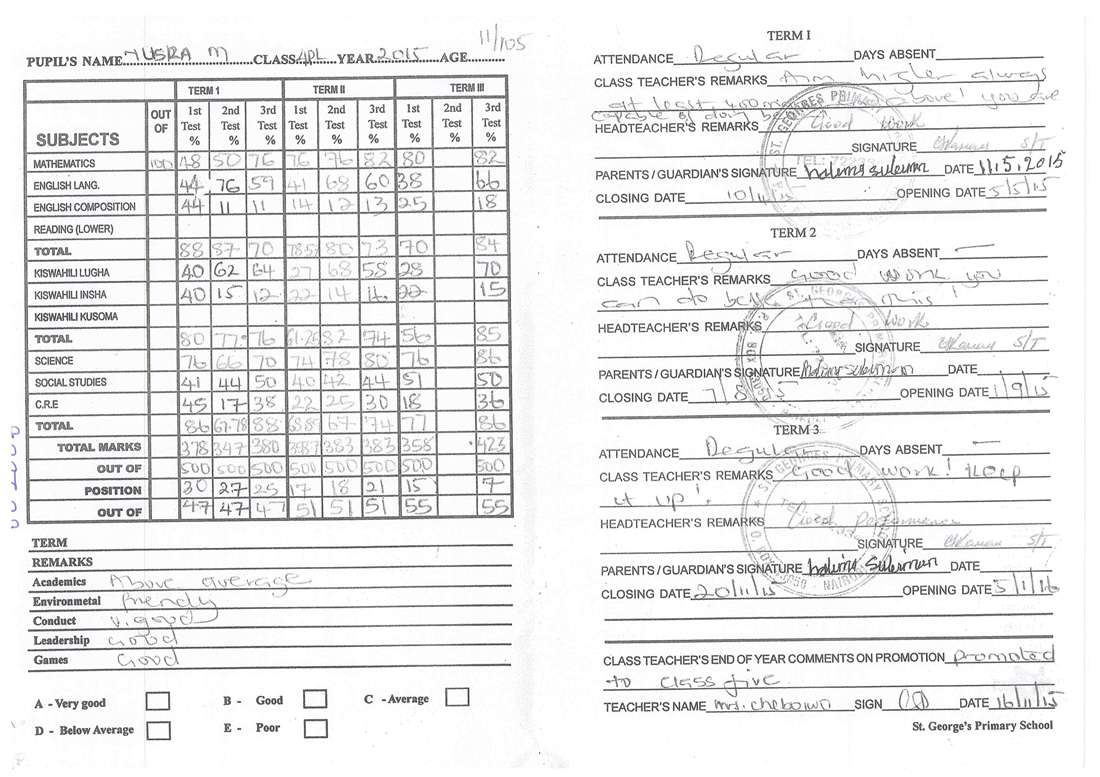 11/105
PUPIL'S NAME YUSRA M CLASS 4PL YEAR 2015 AGE
TERM 1 TERM II TERM III
SUBJECTS OUT OF 1st Test % 2nd Test % 3rd Test % 1st Test % 2nd Test % 3rd Test % 1st Test % 2nd Test % 3rd Test %
MATHEMATICS 100 48 50 76 76 76 82 80 82
ENGLISH LANG. 44 76 59 41 68 60 38 66
ENGLISH COMPOSITION 44 11 11 14 12 13 25 18
READING (LOWER)
TOTAL 88 87 70 78.57 80 73 70 84
KISWAHILI LUGHA 40 62 64 27 68 58 28 70
KISWAHILI INSHA 40 15 12 22 14 22 15
KISWAHILI KUSOMA
TOTAL 80 77 76 82 74 56 85
SCIENCE 76 66 70 74 78 80 76 86
SOCIAL STUDIES 41 44 50 40 42 44 51 50
C.R.E 45 17 38 22 25 30 18 36
TOTAL 86 67.78 88 67 74 77 86
TOTAL MARKS 378 347 380 383 383 358 423
OUT OF 500 500 500 500 500 500 500 500
POSITION 30 27 25 17 18 21 15 7
OUT OF 47 47 47 51 51 51 55 55
TERM
REMARKS
Academics Above average
Environmetal friendly
Conduct V. good
Leadership Good
Games Good
A - Very good B - Good C - Average
D - Below Average E - Poor
TERM I
ATTENDANCE Regular DAYS ABSENT
CLASS TEACHER'S REMARKS Aim higher always
at least 400 above! you are
capable of doing
HEADTEACHER'S REMARKS Good work
SIGNATURE S/T
PARENTS / GUARDIAN'S SIGNATURE halima suleiman DATE 11.5.2015
CLOSING DATE OPENING DATE 5/5/15
TERM 2
ATTENDANCE Regular DAYS ABSENT —
CLASS TEACHER'S REMARKS Good work you
can do better than this!
HEADTEACHER'S REMARKS Good work
SIGNATURE S/T
PARENTS / GUARDIAN'S SIGNATURE halima suleiman DATE
CLOSING DATE 7/8/15 OPENING DATE 1/9/15
TERM 3
ATTENDANCE Regular DAYS ABSENT —
CLASS TEACHER'S REMARKS Good work! Keep
it up!
HEADTEACHER'S REMARKS Good Performance
SIGNATURE S/T
PARENTS / GUARDIAN'S SIGNATURE halima suleiman DATE
CLOSING DATE 20/11/15 OPENING DATE 5/1/16
CLASS TEACHER'S END OF YEAR COMMENTS ON PROMOTION Promoted
to class five
TEACHER'S NAME Mrs. Cheboiwo SIGN DATE 16/11/15
St. George's Primary School